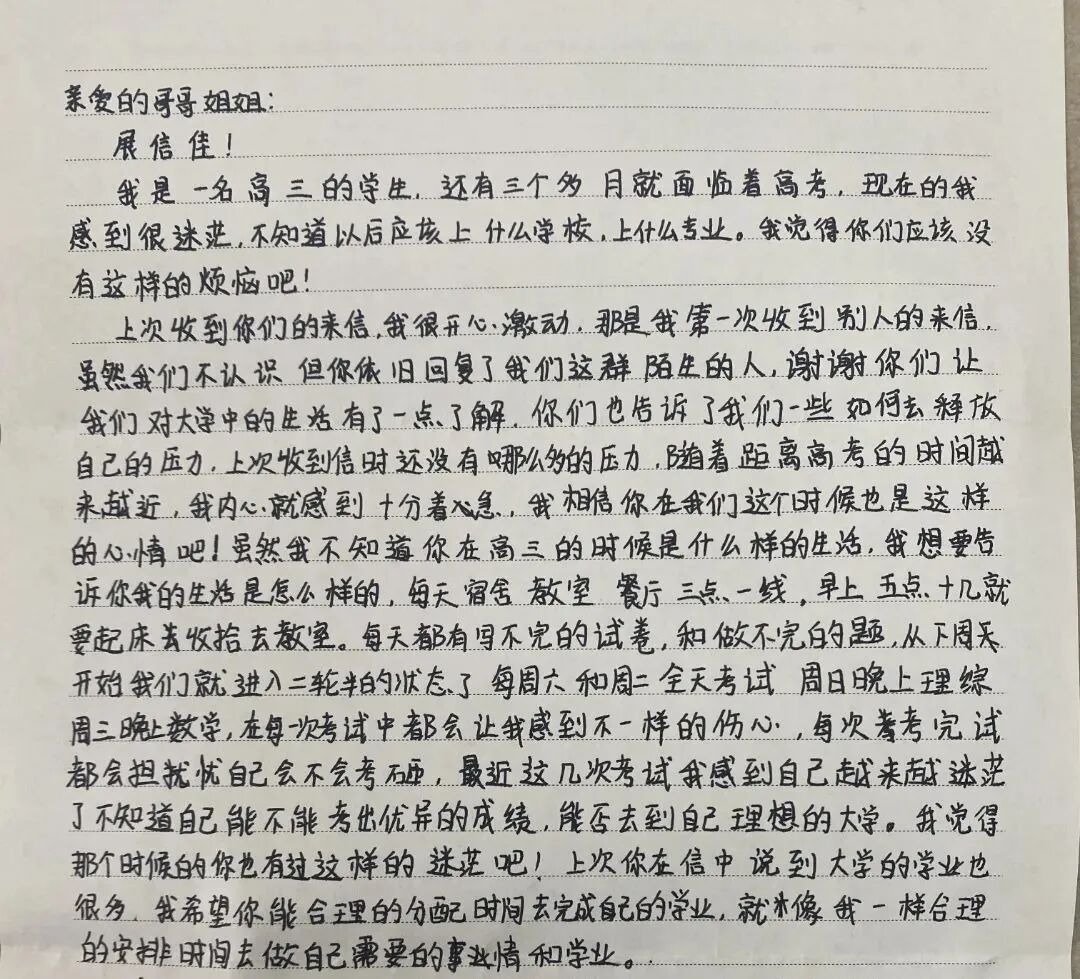 亲爱的哥哥姐姐：
展信佳！
我是一名高三的学生，还有三个多月就面临着高考，现在的我
感到很迷茫，不知道以后应该上什么学校，上什么专业。我觉得你们应该没
有这样的烦恼吧！
上次收到你们的来信，我很开心激动，那是我第一次收到别人的来信，
虽然我们不认识 但你依旧回复了我们这群陌生的人，谢谢你们让
我们对大学中的生活有了一点了解，你们也告诉了我们一些如何去释放
自己的压力，上次收到信时还没有哪么多的压力，随着距离高考的时间越
来越近，我内心就感到十分着急，我相信你在我们这个时候也是这样
的心情吧！虽然我不知道你在高三的时候是什么样的生活，我想要告
诉你我的生活是怎么样的，每天宿舍 教室 餐厅 三点一线，早上五点十几就
要起床去收拾去教室。每天都有写不完的试卷，和做不完的题，从下周天
开始我们就进入二轮半的状态了 每周六和周二全天考试 周日晚上理综
周三晚上数学，在每一次考试中都会让我感到不一样的伤心，每次考完试
都会担忧自己会不会考砸，最近这几次考试我感到自己越来越迷茫
了不知道自己能不能考出优异的成绩，能否去到自己理想的大学。我觉得
那个时候的你也有过这样的迷茫吧！上次你在信中说到大学的学业也
很多，我希望你能合理的分配时间去完成自己的学业，就像我一样合理
的安排时间去做自己需要的事情和学业。